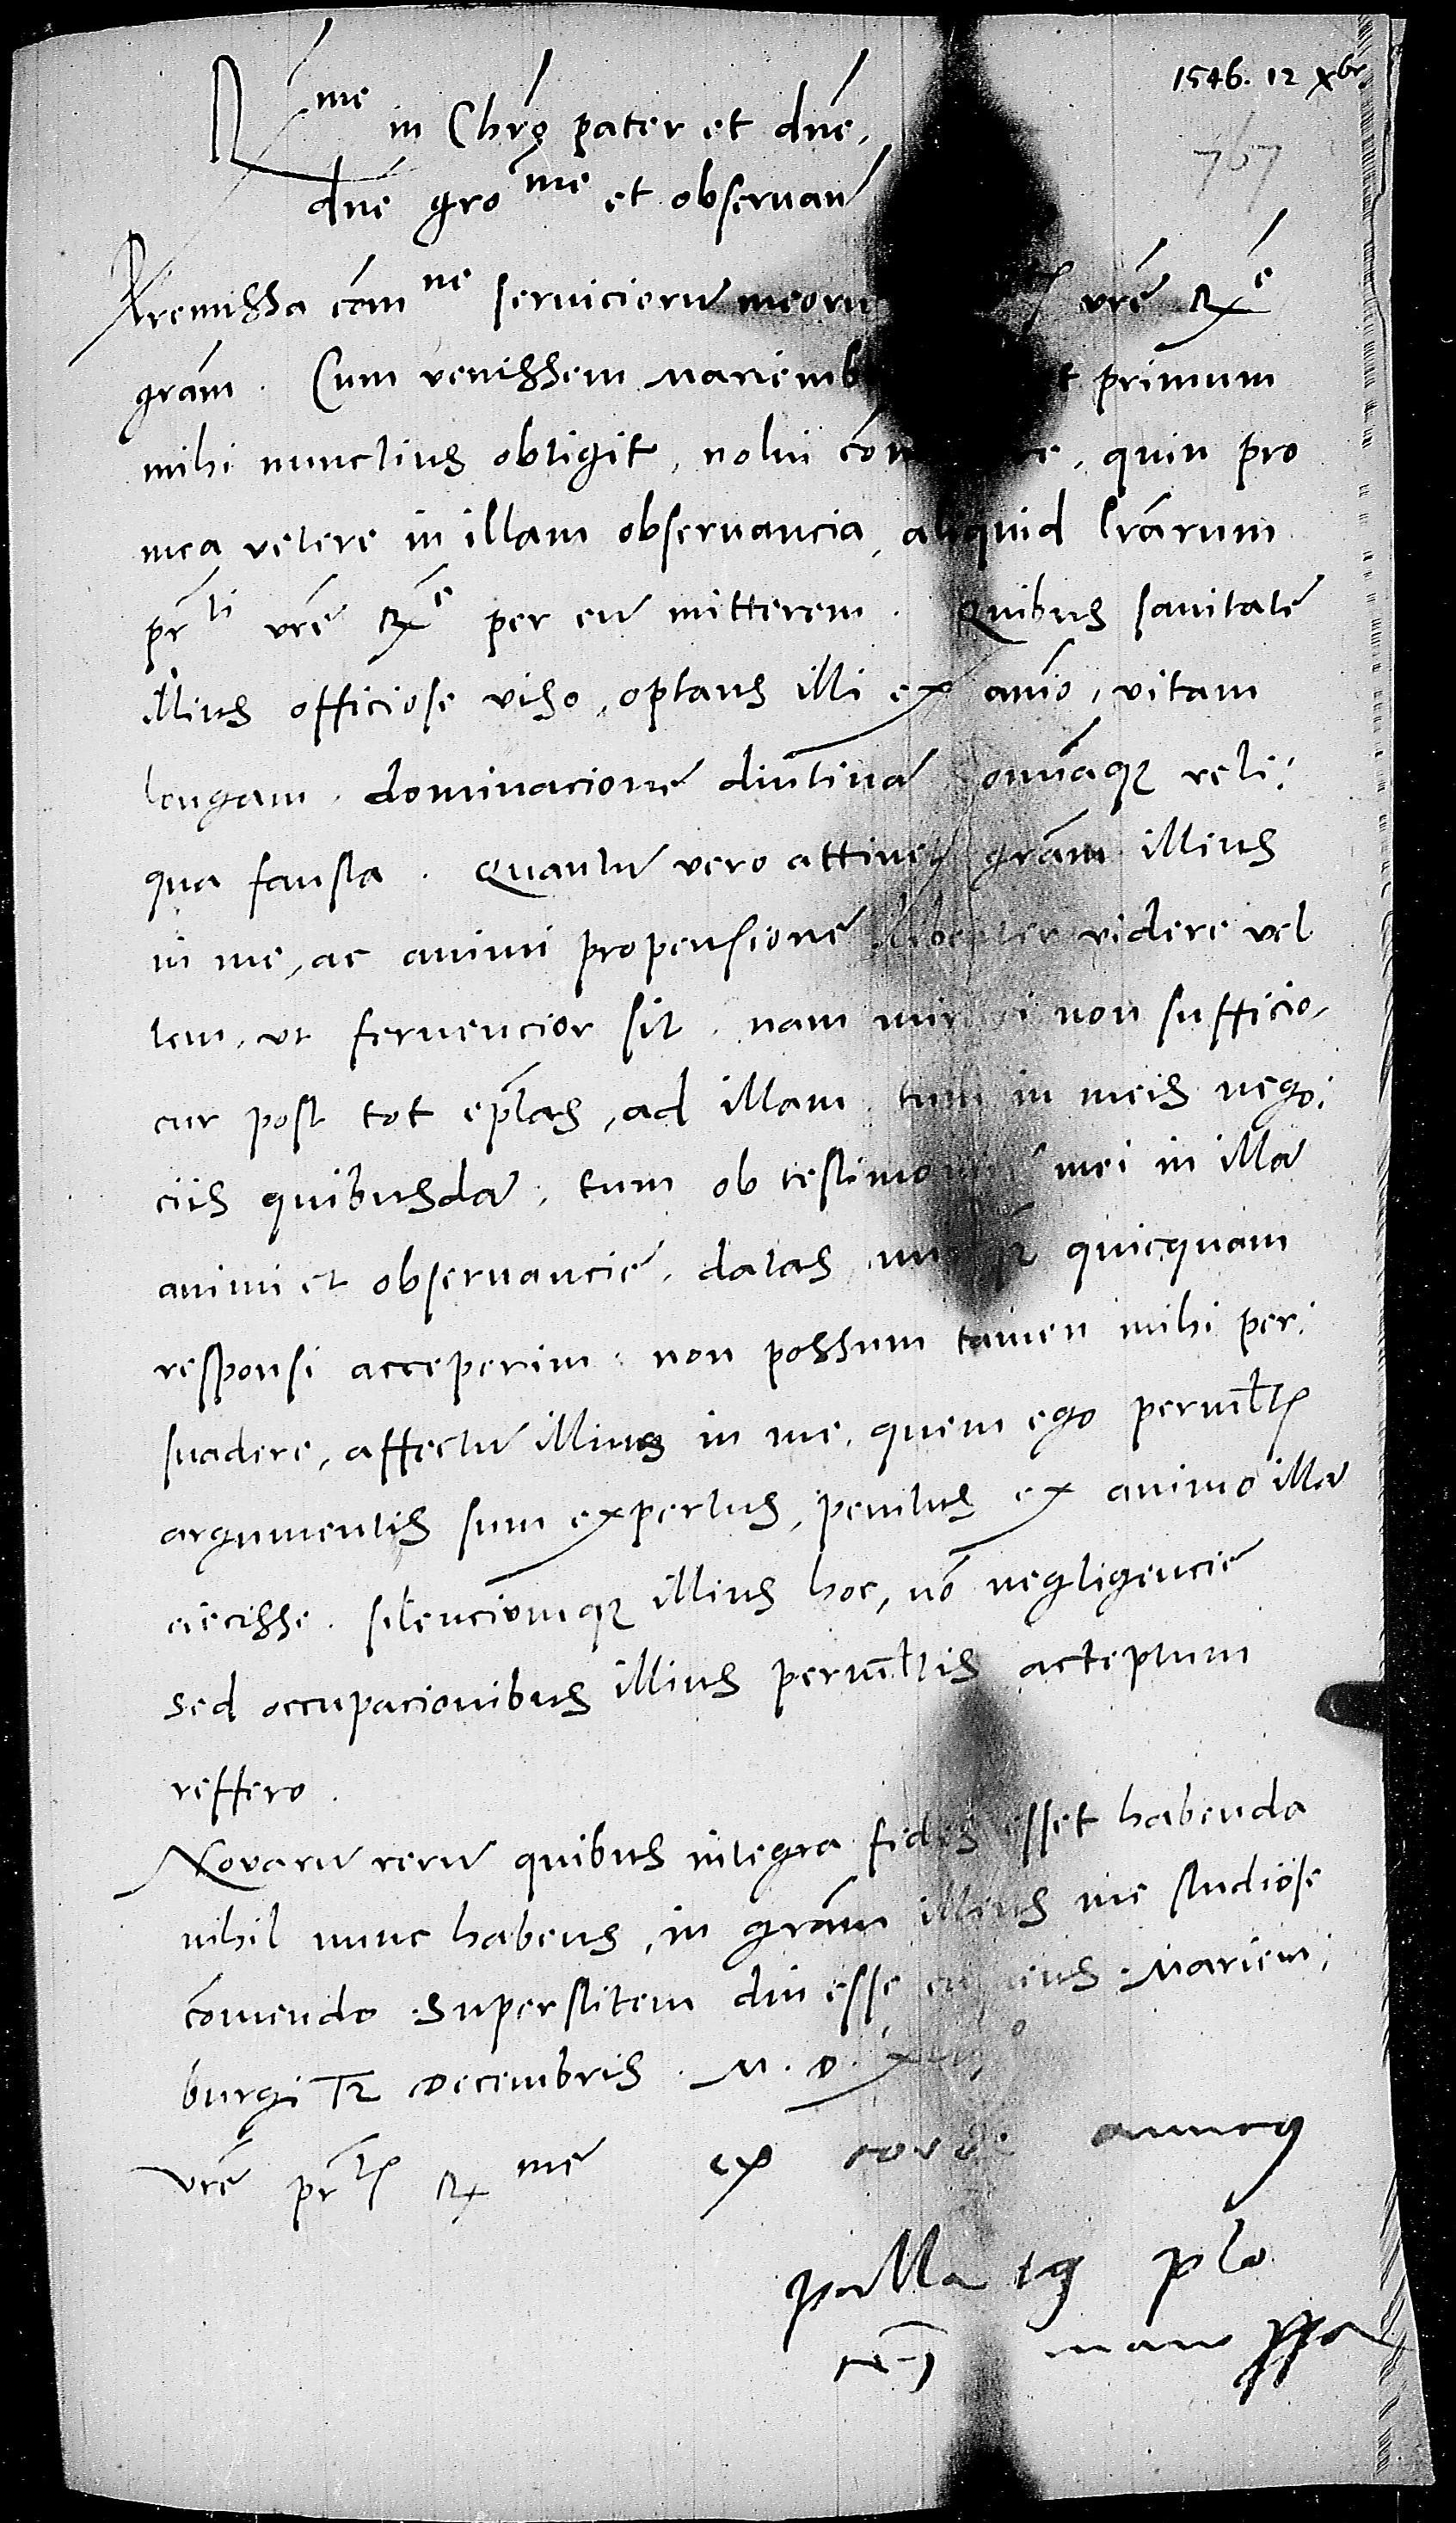 1546. 12 Xbr
767
R^me in Chrõ pater et dñe,
dñe gro^me et observan̄
Premissa com^ne serviciorū meorū vrẽ R^e
gram. Cum venissem Mariemb t primum
mihi nunctius obtigit, nolui com re, quin pro
mea vetere in illam observancia, aliquid lrarum
pr^ti vrẽ R^e per eū mitterem. Quibus sanitatē
illius officiose viso, optans illi ex anīo, vitam
longam, dominacionē diutinā omniaq; reli:
qua fausta. Quantū vero attinet gram illius
in me, ac animi propensionē libenter videre vel
lem, ut fervencior sit. nam mirari non sufficio,
cur post tot eplas, ad illam, tum in meis nego:
ciis quibusdā, tum ob testimoniū mei in illā
animi et observanciē, datas, quicquam
responsi acceperim. non possum tamen mihi per:
suadere, affectū illius in me, quem ego permltis
argumentis sum expertus, penitus ex animo illā
eiecisse. silenciumq; illius hoc, nō negligencie
sed occupacionibus illius permltis acceptum
reffero.
Novarū rerū quibus integra fides esset habenda
nihil nunc habens, in gram illius me studiose
comendo. Superstitem diu esse cupiens. Mariem:
burgi 12 Decembris. M. D.
Vrẽ pr^tis R^me ex corde amicus
manu ppa